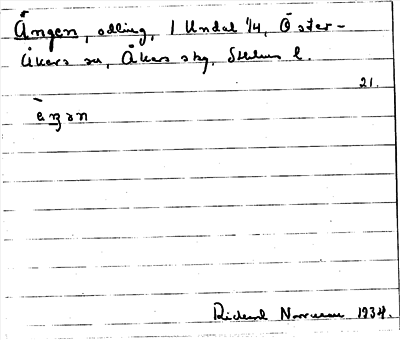 Ängen, odling, 1 Undal 1/4, Öster-
åkers sn, Åkers skg, Sthlms l.
21.
èŋən
Rickard 1934.